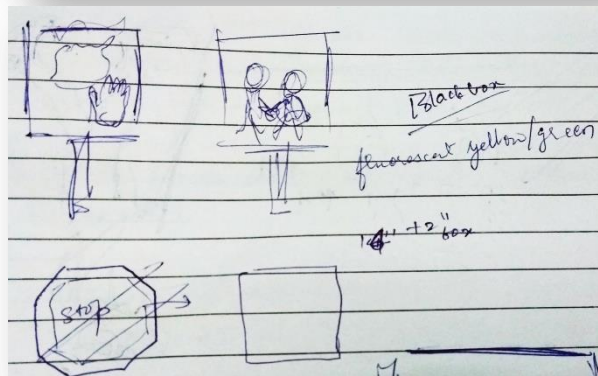 Black box
fluorescent yellow/green
+2" box
Stop